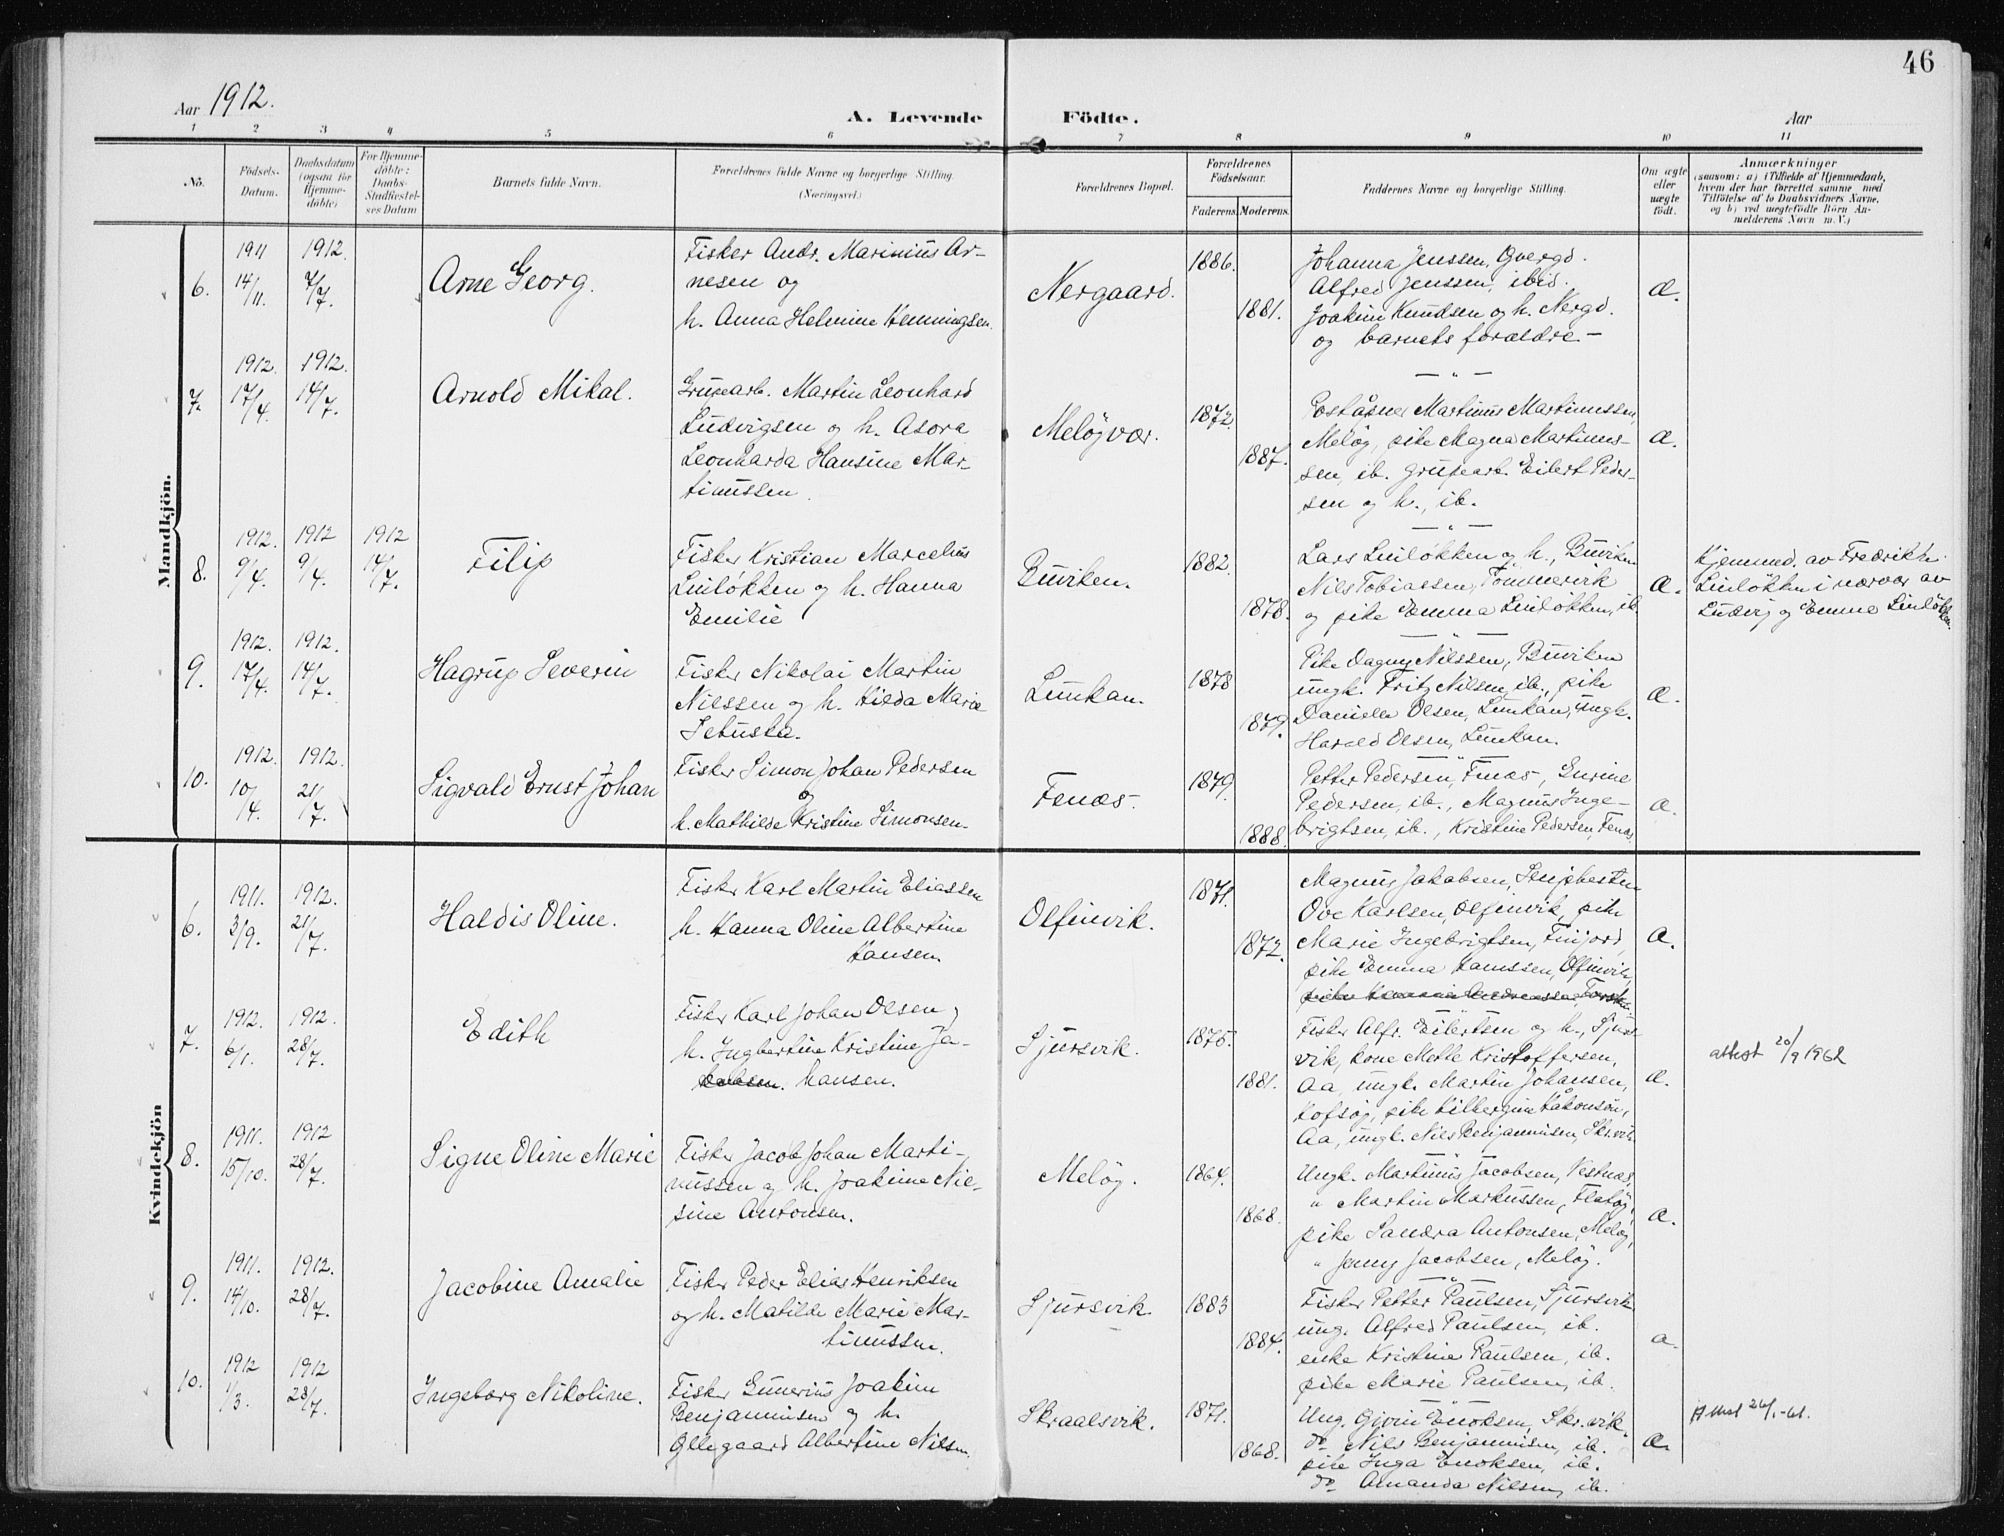 46
Aar 1912.
A. Levende Födte.
Aar
1 2 3 4 5 6 7 8 9 10 11
No.
Födsels-
Datum.
Daabsdatum
(ogsaa for
Hjemme-
döbte)
For Hjemme-
döbte:
Daabs-
Stadfæstel-
ses Datum
Barnets fulde Navn.
Forældrenes fulde Navne og borgerlige Stilling.
(Næringsvei.)
Forældrenes Bopæl.
Forældrenes
Födselsaar.
Faderens. Moderens.
Faddernes Navne og borgerlig Stilling.
Om ægte
eller
uægte
født.
Anmærkninger
(saasom: a) i Tilfælde af Hjemmedaab,
hvem der har forrettet samme, med
Tilföielse af to Daabsvidners Navne,
og b) ved uægtefödte Börn An-
melderens Navn m. V.)
Mandkjön.
6.
1911
14/11.
1912.
7/7.
Arne Georg.
Fisker Andr. Marinius Ar-
nesen og
h. Anna Helmine Henningsen.
Nergaard.
1886.
1881.
Johanna Jenssen,
Alfred Jenssen, ibid.
Joakim Knudsen og h. Nergd.
og barnets forældre –
æ.
7.
1912.
17/4.
1912.
14/7.
Arnold Mikal.
Grubearb. Martin Leonhard
Ludvigsen og h. Asora
Leonharda Hansine Mar-
tinussen.
Meløyvær.
1872.
1887.
Martinus Martinussen,
Meløy, pike Magna Martinus-
sen, ib. grubearb. Eilert Peder-
sen og h., ib.
æ.
8.
1912.
9/4.
1912
9/4.
1912
14/7.
Filip
Fisker Kristian Marcelius
Linløkken og h. Hanna
Emilie
Buviken.
1882.
1878.
Lars Linløkken og h., Buviken
Nils Tobiassen, Tømmervik
og pike Emma Linløkken, ib
æ.
Hjemmed. av Fredrikke
Linløkken i nærvær av
Ludvig og Emma Linløkken.
9.
1912.
17/4.
1912.
14/7.
Hagrup Severin
Fisker Nikolai Martin
Nilssen og h. Hilda Marie
Lunkan.
1878
1879.
Pike Dagny Nilssen, Buviken
ungk. Fritz Nilsen, ib., pike
Daniella Olsen, Lunkan, ungk.
Harald Olsen, Lunkan.
æ.
10.
1912.
10/4.
1912.
21/7.
Sigvald Ernst Johan
Fisker Simon Johan Pedersen
og
h. Mathilde Kristine Simonsen.
Fenæs.
1879.
1888.
Petter Pedersen, Fenæs,
Pedersen, ib., Magnus Inge-
brigtsen, ib., Kristine Pedersen, Fenæs
æ.
Kvindekjön
6.
1911.
3/9.
1912.
21/7.
Haldis Oline.
Fisker Karl Martin Eliassen
h. Hanna Oline Albertine
Hansen.
Olfinvik.
1871.
1872.
Magnus Jakobsen,
Ove Karlsen, Olfinvik, pike
Marie Ingebrigtsen, Finjord,
pike Emma Hanssen, Olfinvik,
æ.
7.
1912.
6/1.
1912.
28/7.
Edith
Fisker Karl Johan Olsen og
h. Ingbertine Kristine Ja-
Hansen.
Sjursvik.
1875.
1881.
Fisker Alfr. Eilertsen og h., Sjurs-
vik, kone Mette Kristoffersen,
Aa, ungk. Martin Johansen,
pike Hilbergine Håkonsen,
Aa, ungk. Nils Benjaminsen, Skr.vik.
æ.
attest 20/9 1962
8.
1911.
15/10.
1912
28/7.
Signe Oline Marie
Fisker Jacob Johan Marti-
nussen og h. Joakine Nie-
sine Antonsen.
Meløy.
1864.
1868.
Ungk. Martinus Jacobsen, Vestnæs,
" Martin Markussen, Flatøy,
pike Sandra Antonsen, Meløy,
" Jenny Jacobsen, Meløy.
æ.
9.
1911.
14/10.
1912.
28/7.
Jacobine Amalie
Fisker Peder Elias Henriksen
og h. Matilde Marie Mar-
tinussen.
Sjursvik.
1883
1884.
Fisker Petter Paulsen, Sjursvik
ung. Alfred Paulsen, ib.
enke Kristine Paulsen, ib.
pike Marie Paulsen, ib.
æ.
10.
1912
1/3.
1912
28/7.
Ingeborg Nikoline.
Fisker Gunerius Joakim
Benjaminsen og h.
Ollegaard Albertine Nilsen.
Skraalsvik.
1871.
1868.
Ung. Enoksen, Skr.vik
do Nils Benjaminsen, ib.
pike Inga Enoksen, ib.
do Amanda Nilsen, ib.
æ.
Attest 26/1-61.